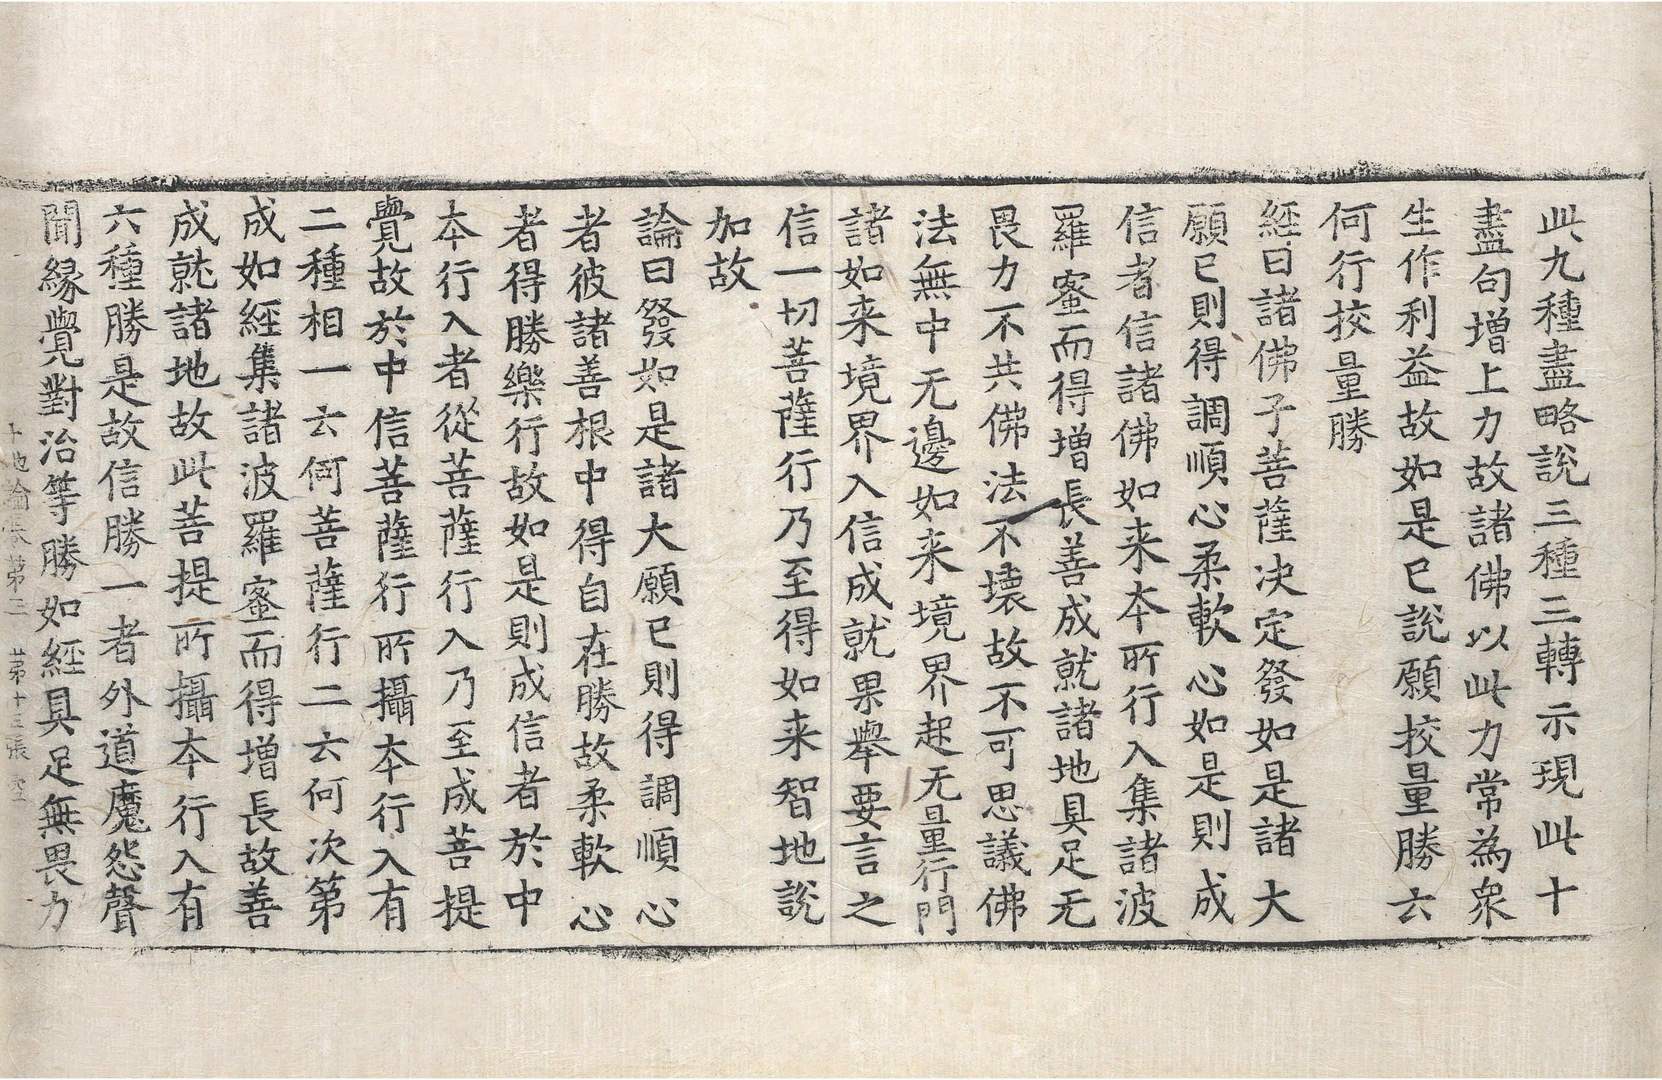 此九種盡略說三種三轉示現此十
盡句增上力故諸佛以此力常為衆
生作利益故如是已說願挍量勝云
何行挍量勝
經曰諸佛子菩薩决定發如是諸大
願已則得調順心柔軟心如是則成
信者信諸佛如来夲所行入集諸波
羅蜜而得增長善成就諸地具足无
畏力不共佛法不壞故不可思議佛
法無中无邊如来境界起无量行門
諸如来境界入信成就果舉要言之
信一切菩薩行乃至得如来智地說
加故
論曰發如是諸大願已則得調順心
者彼諸善根中得自在勝故柔軟心
者得勝樂行故如是則成信者於中
夲行入者從菩薩行入乃至成菩提
覺故於中信菩薩行所攝夲行入有
二種相一云何菩薩行二云何次第
成如經集諸波羅蜜而得增長故善
成就諸地故此菩提所攝夲行入有
六種勝是故信勝一者外道魔怨聲
聞緣覺對治等勝如經具足無畏力
十地論卷第三 第十三張 空